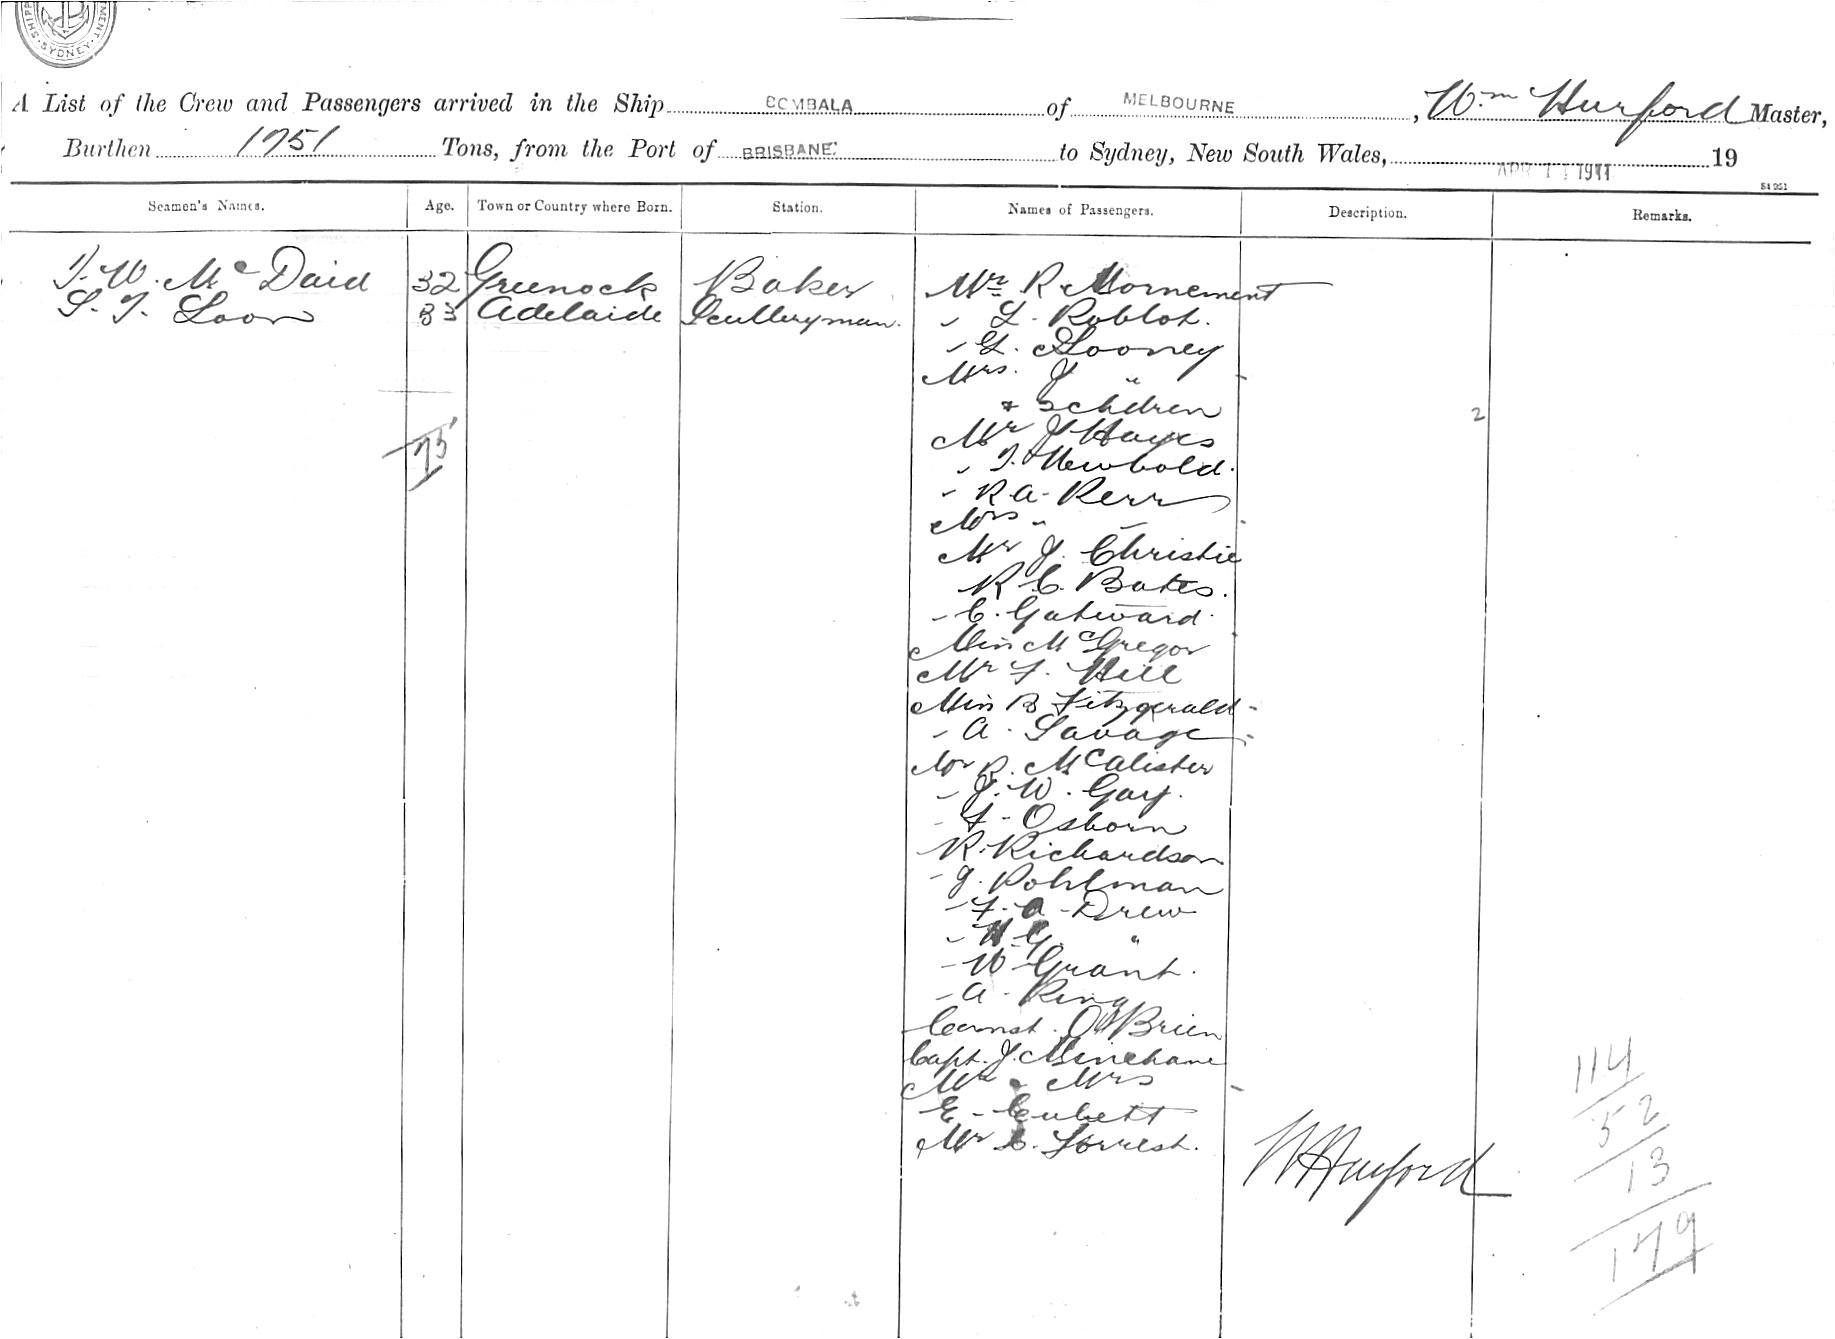 SYDNEY
A List of the Crew and Passengers arrived in the Ship BOMBALA of MELBOURNE, Wm Hurford Master,
Burthen 1751 Tons, from the Port of BRISBANE to Sydney, New South Wales, APR 1911 19
Seamen's Names. Age. Town or Country where Born. Station. Names of Passengers. Description. Remarks.
McDaid 32 Greenock Baker
S. T. Loon 33 Adelaide Sculleryman.
75
Mr R Mornement
" L. Roblot.
" G. Looney
Mrs. J "
& 2 chdren 2
Mr J Hayes
" T. Newbold.
" R A. Kerr
Mrs " "
Mr J. Christie
R C. Bates.
" C. Gatward.
Miss McGregor
Mr F. Hill
Miss B Fitzgerald
" A. Savage
Mr R. McAlister
" J. W. Gary.
" F. Osborn
R. Richardson
" G. Pohlman
" F. A. Drew
" G "
" W Grant.
" A. King
Const. O'Brien
Capt. J. Minehane
Mr & Mrs
E. Cubett
Mr C. Forrest.
W Hurford
114
52
13
179